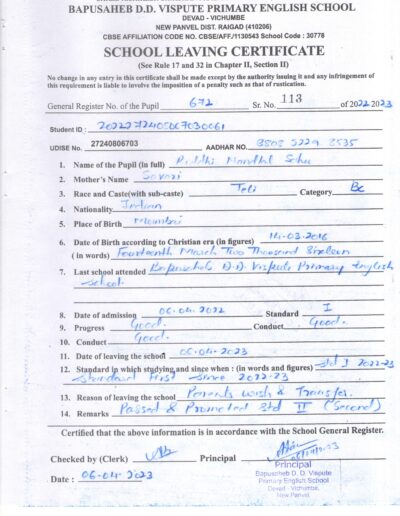 BAPUSAHEB D.D. VISPUTE PRIMARY ENGLISH SCHOOL
DEVAD - VICHUMBE
NEW PANVEL DIST. RAIGAD (410206)
CBSE AFFILIATION CODE NO. CBSE/AFF./1130543 School Code : 30778
SCHOOL LEAVING CERTIFICATE
(See Rule 17 and 32 in Chapter II, Section II)
No change in any entry in this certificate shall be made except by the authority issuing it and any infringement of
this requirement is liable to involve the imposition of a penalty such as that of rustication.
General Register No. of the Pupil 672 Sr. No. 113 of 2022 2023
Student ID :
UDISE No. 27240806703 AADHAR NO.
1. Name of the Pupil (in full)
2. Mother's Name
3. Race and Caste(with sub-caste) Teli Category Bc
4. Nationality Indian
5. Place of Birth Mumbai
6. Date of Birth according to Christian era (in figures) 14-03-2016
( in words) Fourteenth March Two Thousand Sixteen
7. Last school attended Bapusaheb D.D. Vispute Primary English
school.
8. Date of admission 06-04-2022 Standard I
9. Progress Good. Conduct Good.
10. Conduct Good.
11. Date of leaving the school 06-04-2023
12. Standard in which studying and since when : (in words and figures) std I 2022-23
Standard First - since 2022-23
13. Reason of leaving the school Parents wish & Transfer.
14. Remarks Passed & Promoted std II (Second)
Certified that the above information is in accordance with the School General Register.
Checked by (Clerk) Principal
Principal
Bapusaheb D. D. Vispute
Primary English School
Devad - Vichumbe,
New Panvel.
Date : 06-04-2023